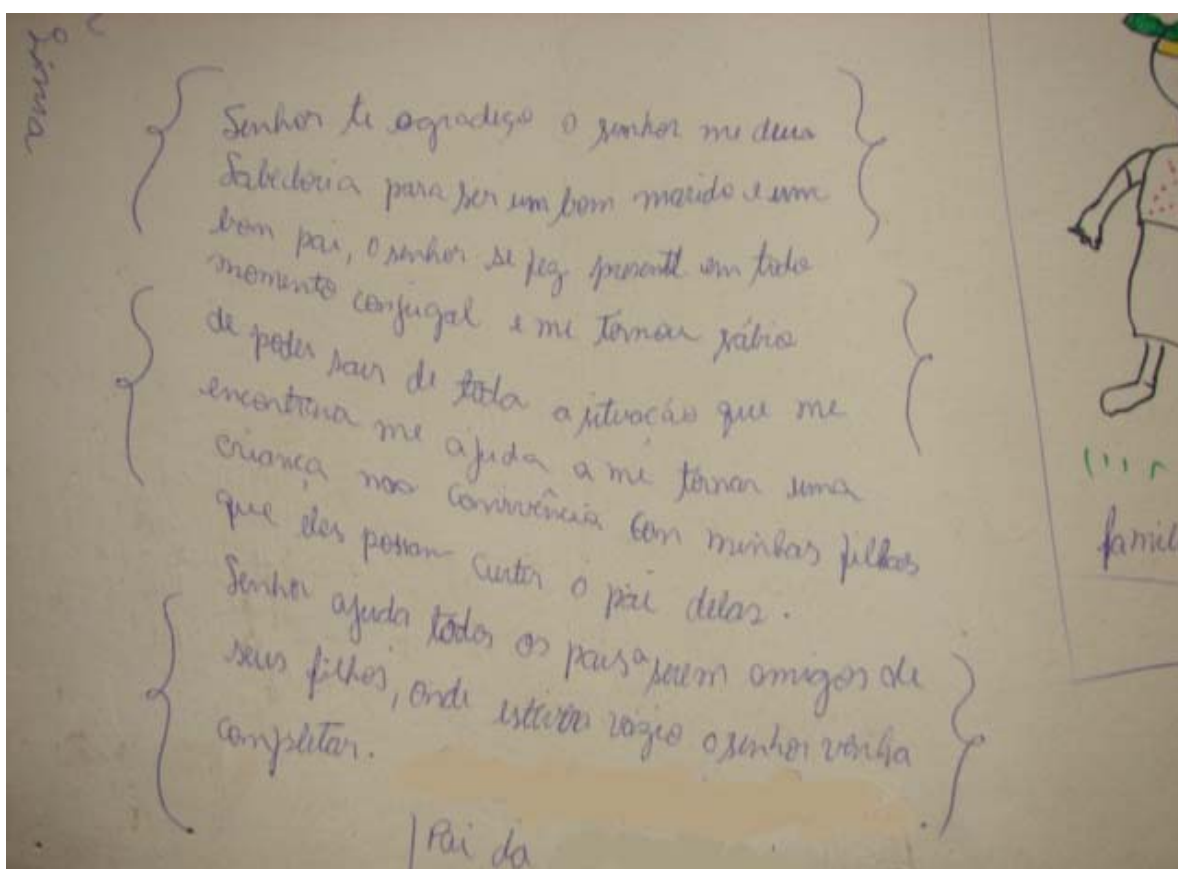 Senhor te agradeço o senhor me deu a
Sabedoria para ser um bom marido e um
bom pai, o senhor se fez presente em todo
momento conjugal e me tornou sábio
de poder sair de toda a situação que me
encontrava me ajuda a me tornar uma
criança nas convivência com minhas filhas
que elas possam curtir o pai delas.
Senhor ajuda todos os pais a serem amigos de
seus filhos, onde estiver vazio o senhor venha
completar.
Pai da
famil